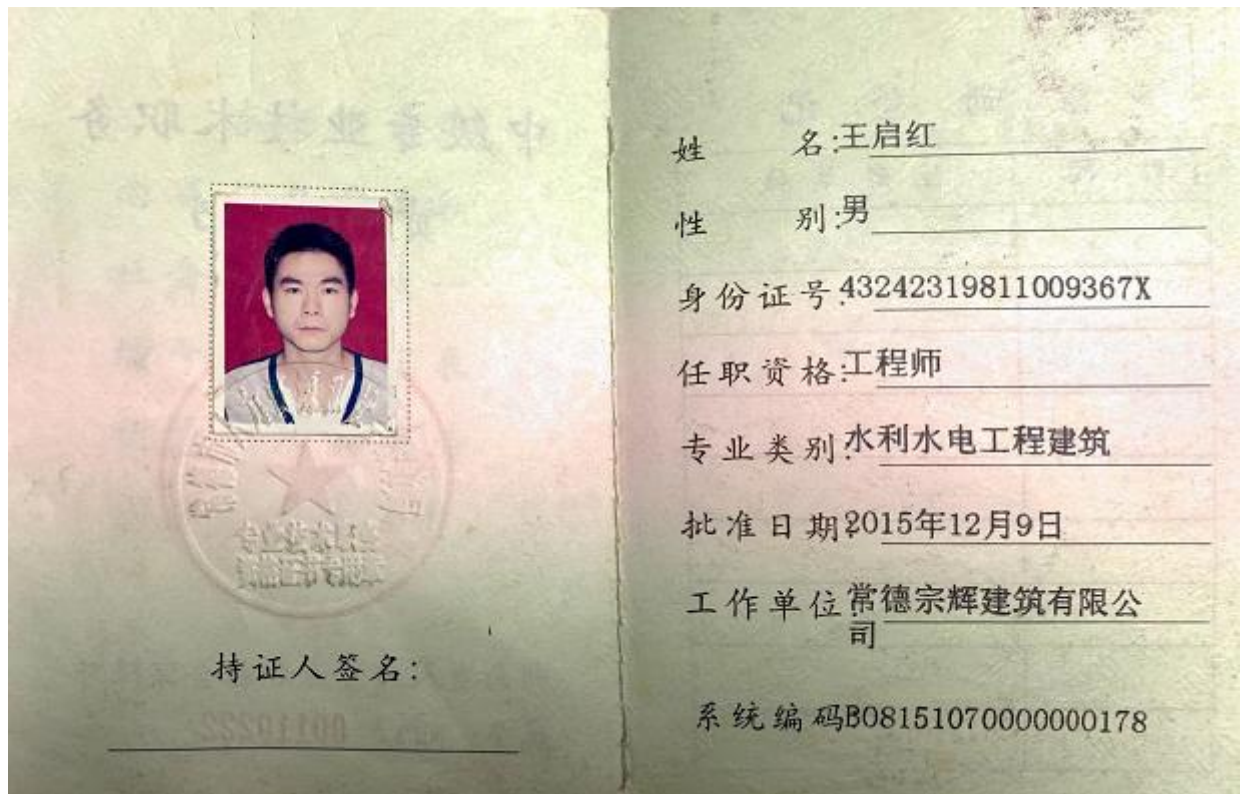 持证人签名:
姓名:王启红
性别:男
身份证号:43242319811009367X
任职资格:工程师
专业类别:水利水电工程建筑
批准日期:2015年12月9日
工作单位:常德宗辉建筑有限公
司
系统编码B08151070000000178